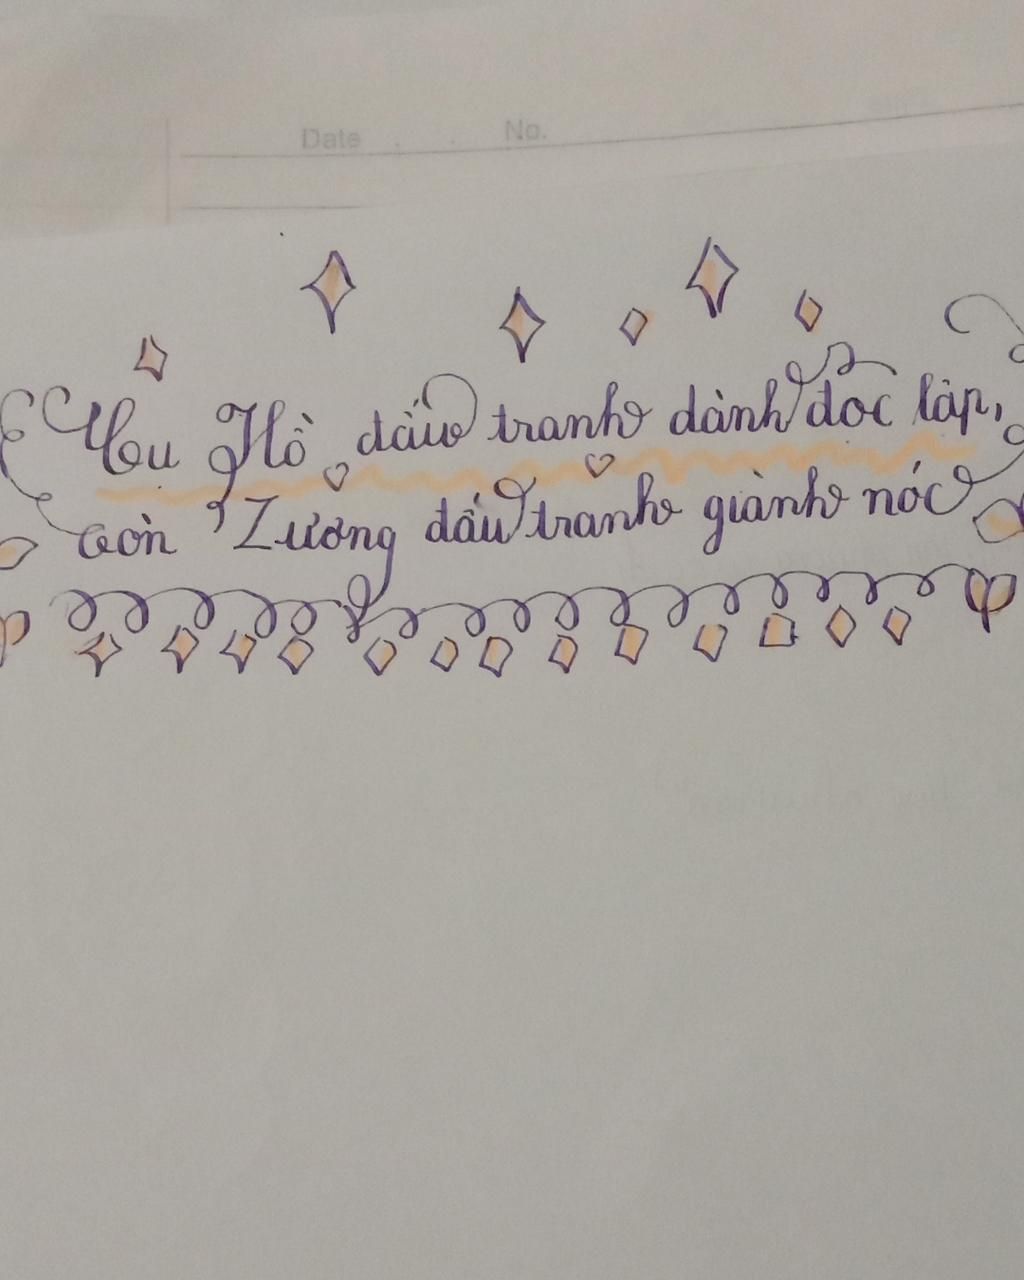 Date No.
Cụ Hồ đấu tranh dành độc lập,
Còn Lương đấu tranh giành nóc